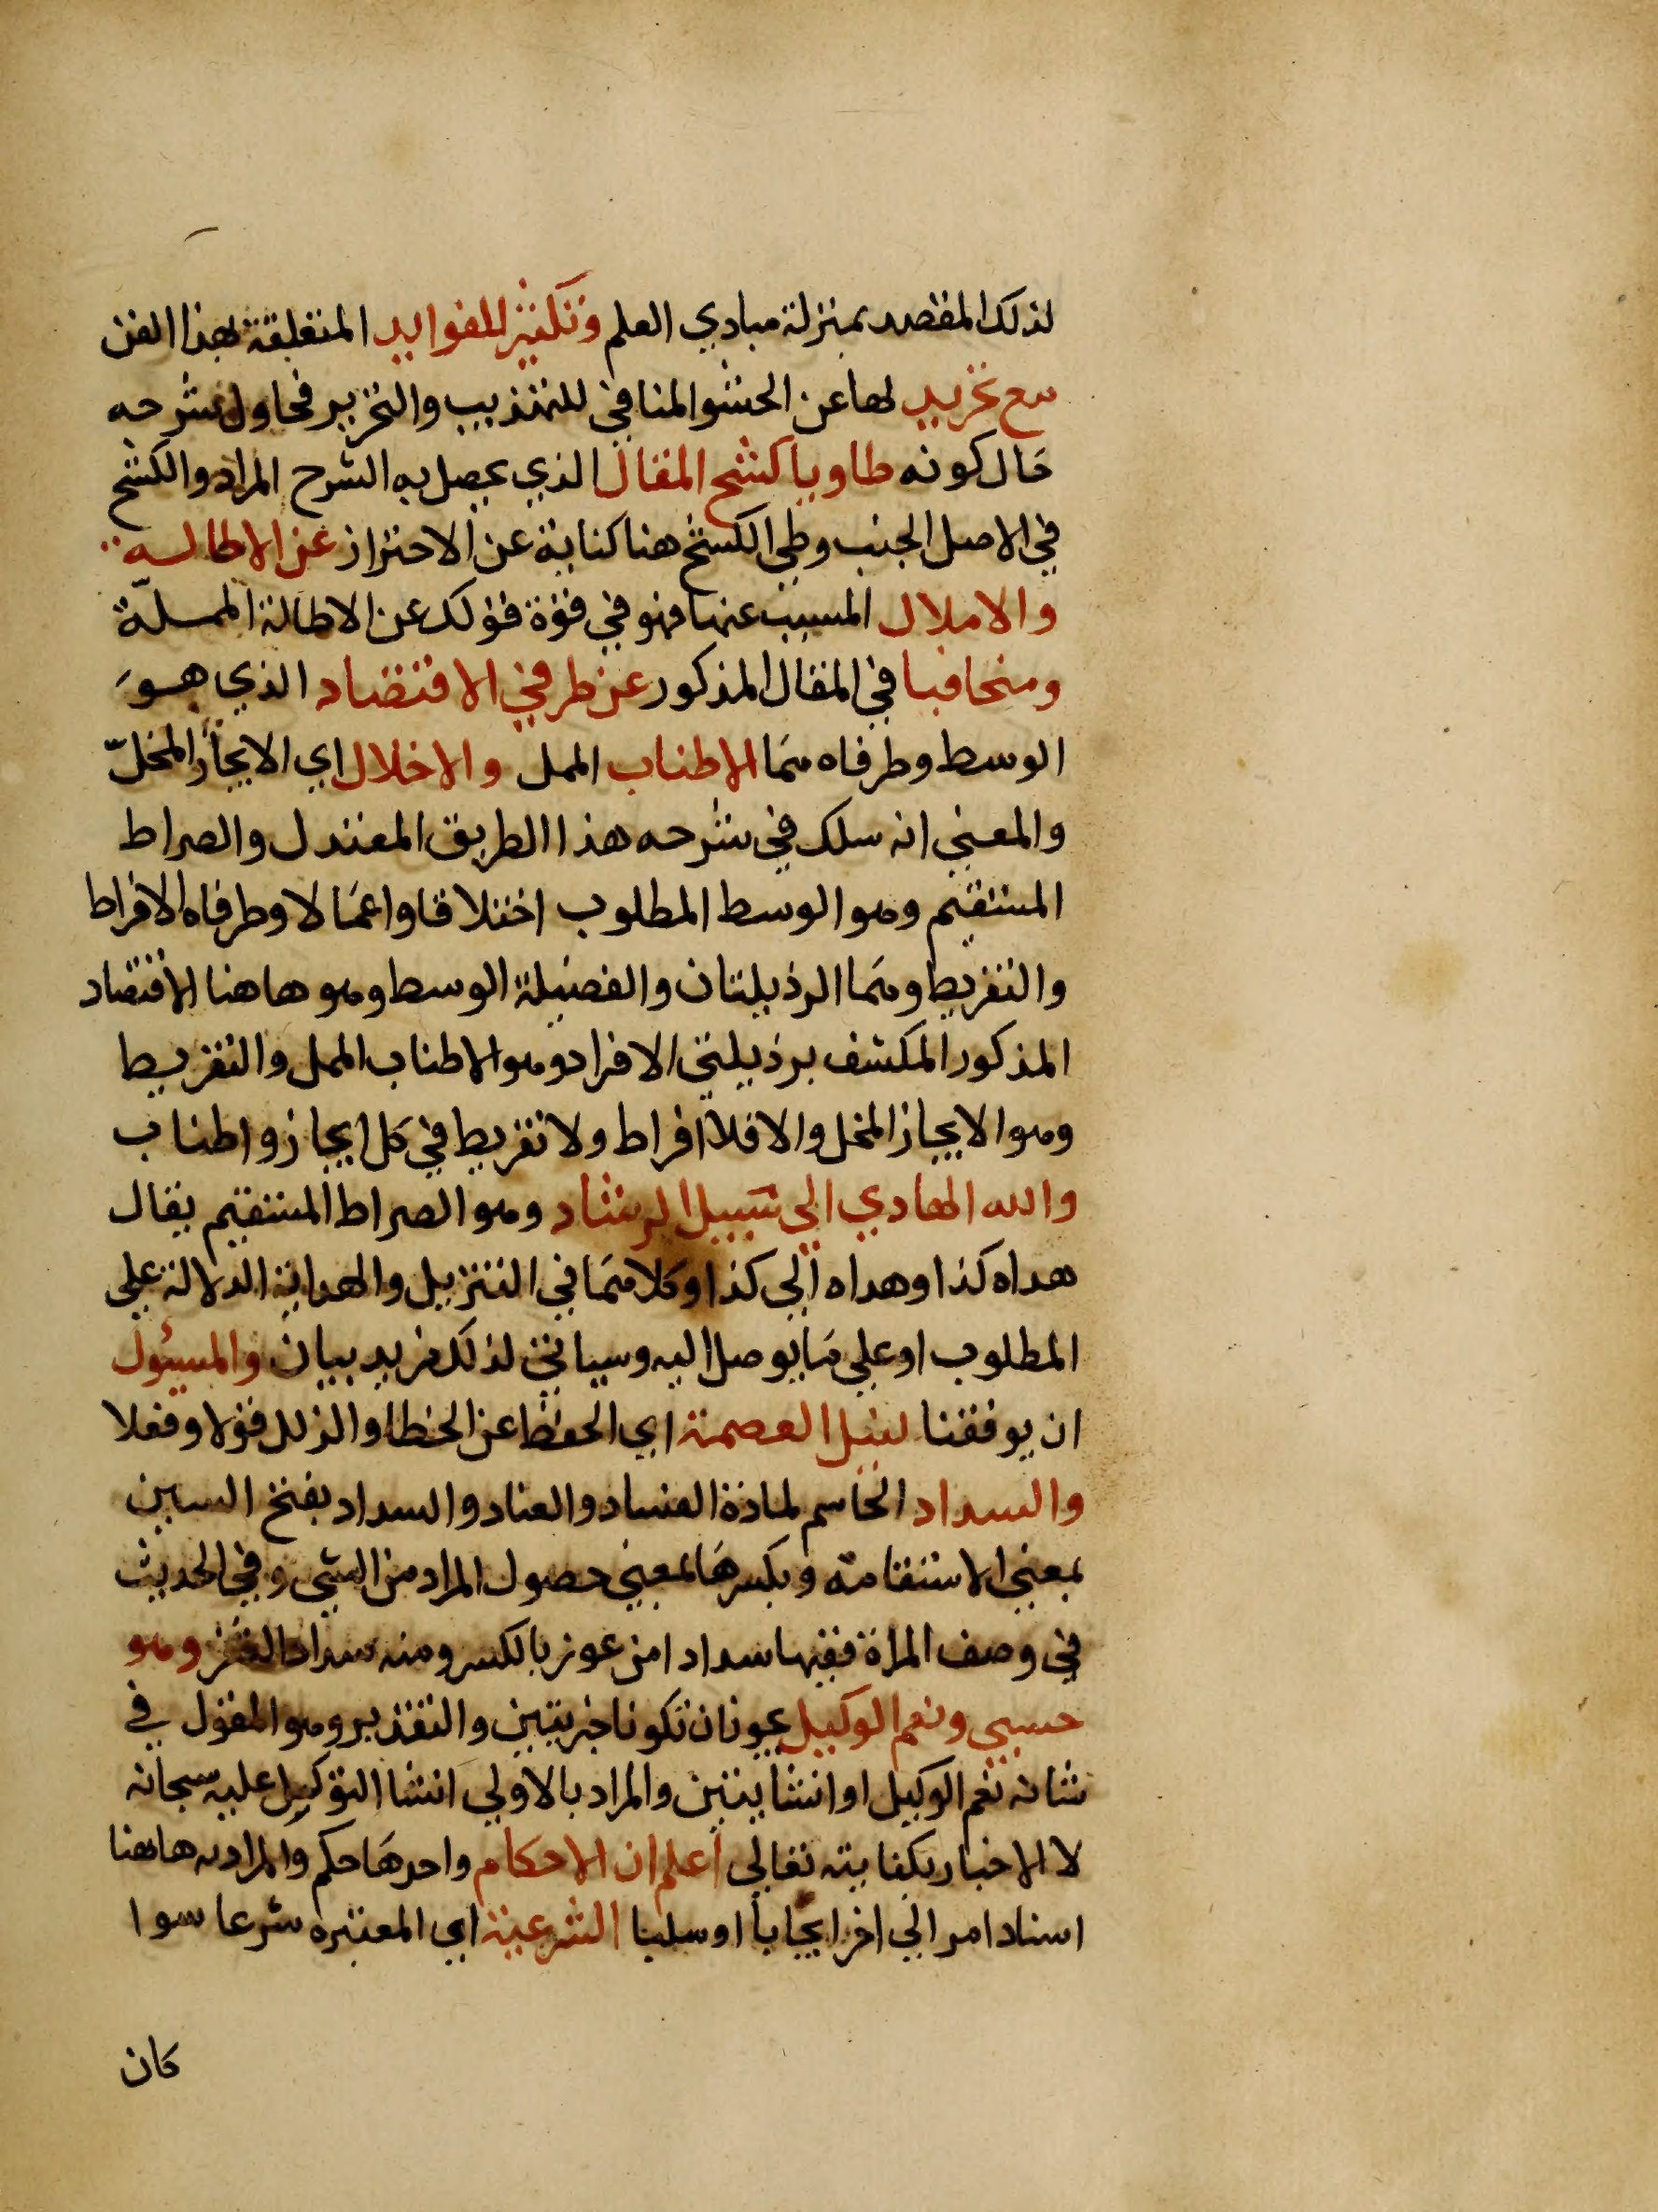 لذلك المقصد بمنزلة مبادي العلم وتكثير للفوايد المتعلقة بهذا الفن
مع تجريد لها عن الحشو المنافي للتهذيب والتحرير فحاول شرحه
حال كونه طاويا كشح المقال الذي يحصل به الشرح المراد والكشح
في الاصل الجنب وطي الكشح هنا كناية عن الاحتراز عن الاطاله
والاملال المسبب عنها فهو في قوة قولك عن الاطالة المملة
ومتجافيا في المقال المذكور عن طرفي الاقتصاد الذي هو
الوسط وطرفاه هما الاطناب الممل والاخلال اي الايجاز المخلّ
والمعني انه سلك في شرحه هذا الطريق المعتدل والصراط
المستقيم وهو الوسط المطلوب اختلاقا واعمالا وطرفاه الافراط
والتفريط وهما الرذيلتان والفضيلة الوسط وهو هاهنا الاقتصاد
المذكور المكتنف برذيلتي الافراد وهو الاطناب الممل والتفريط
وهو الايجاز المخل والا فلا افراط ولا تفريط في كل ايجاز واطناب
والله الهادي الي سبيل الرشاد وهو الصراط المستقيم يقال
هداه كذا وهداه الي كذا وكلاهما في التنزيل والهداية الدلالة علي
المطلوب او علي ما يوصل اليه وسياتي لذلك مزيد بيان والمسئول
ان يوفقنا لنيل العصمة اي الحفظ عن الخطا والزلل قولا وفعلا
والسداد الحاسم لمادة الفساد والعناد والسداد بفتح السين
بمعني الاستقامة وبكسرها بمعني حصول المراد من الشي وفي الحديث
في وصف المراة ففيها سداد من عوز بالكسر ومنه سداد الثغر وهو
حسبي ونعم الوكيل يجوز ان تكونا خبريتين والتقدير وهو المقول في
شانه نعم الوكيل او انشايتين والمراد بالاولي انشا التوكيل عليه سبحانه
لا الاخبار بكفايته تعالي اعلم ان الاحكام واحدها حكم والمراد به هاهنا
اسناد امر الي اخر ايجابا او سلبا الشرعية اي المعتبره شرعا سوا
كان